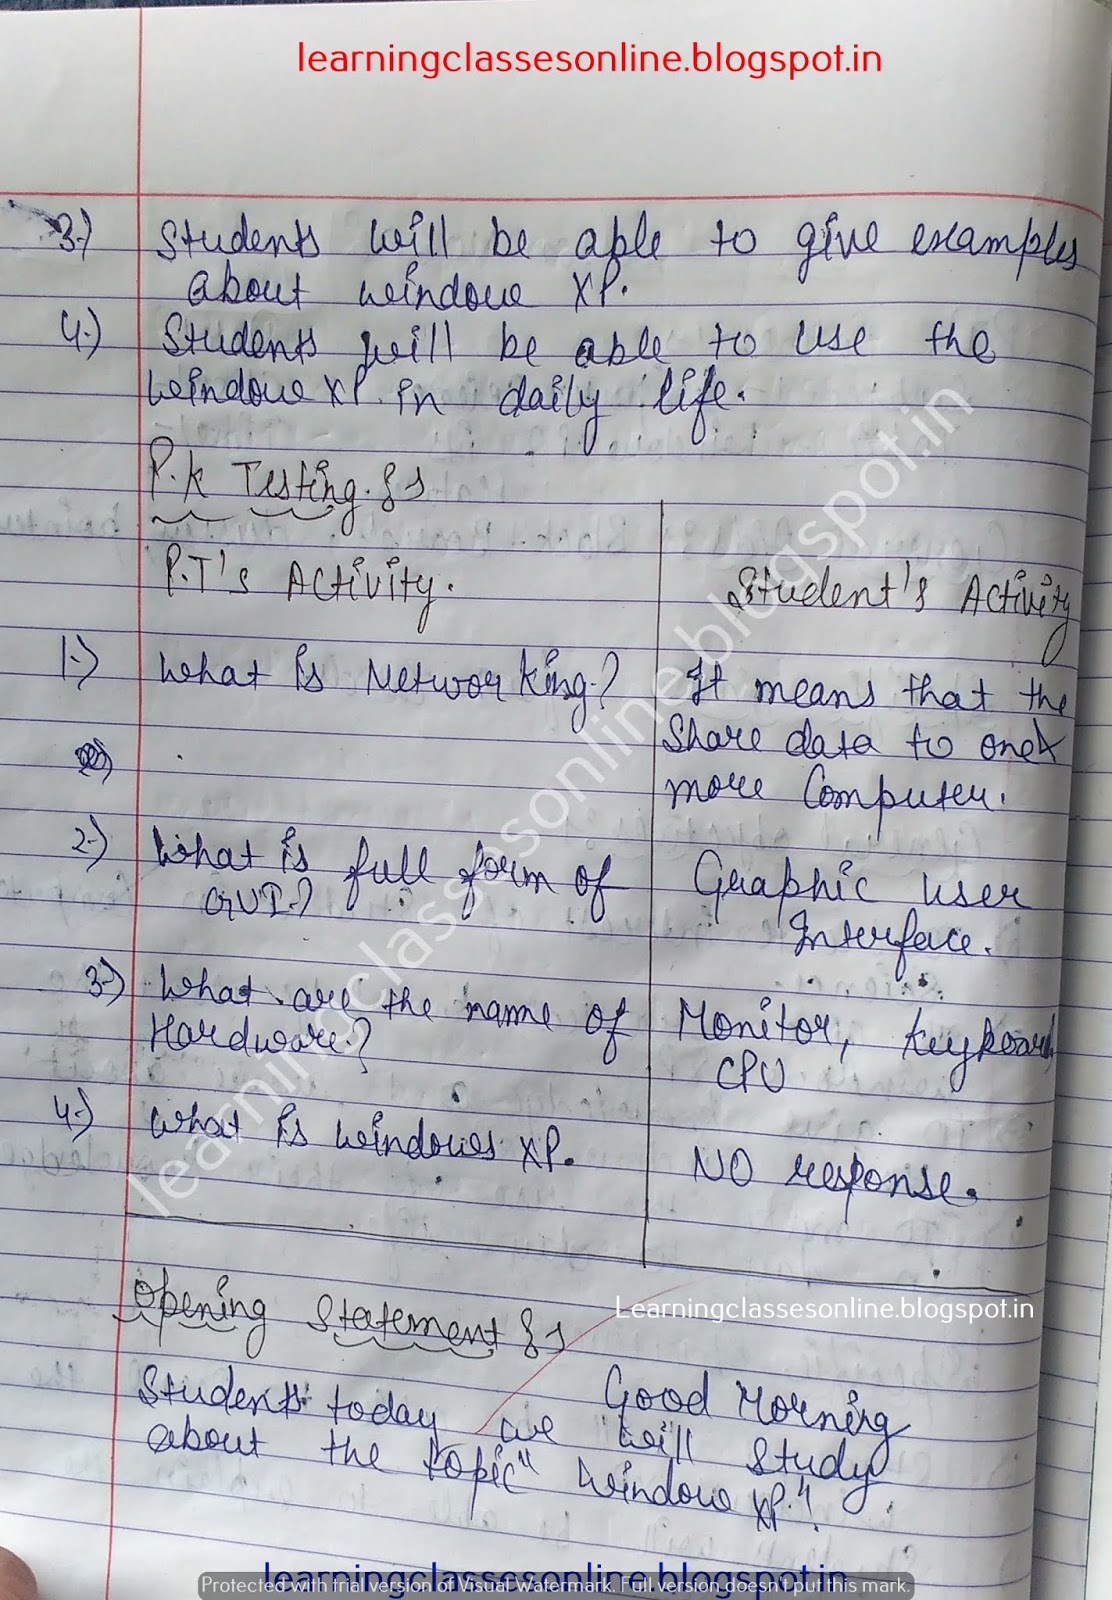 learningclassesonline.blogspot.in
3.) Students will be able to give examples
about window XP.
4.) Students will be able to use the
window XP. in daily life.
P.K Testing :-
P.T's Activity.
Student's Activity
1.) What is Networking?
It means that the
share data to one &
more Computer.
2.) What is full form of
GUI.?
Graphic user
Interface.
3.) What are the name of
Hardware?
Monitor, Keyboard,
CPU
4.) What is windows XP.
NO response.
Opening Statement :-
Learningclassesonline.blogspot.in
Good Morning
Students today we will study
about the topic "window XP."
learningclassesonline.blogspot.in
learningclassesonline.blogspot.in
Protected with trial version of Visual Watermark. Full version doesn't put this mark.